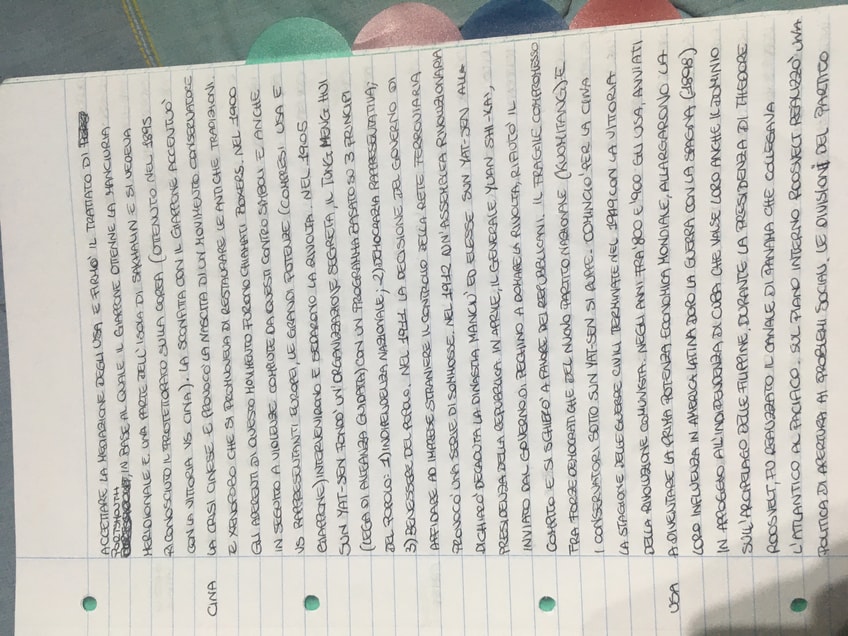 ACCETTARE LA MEDIAZIONE DEGLI USA E FIRMÒ IL TRATTATO DI
PORTSMOUTH
, IN BASE AL QUALE IL GIAPPONE OTTENNE LA MANCIURIA
MERIDIONALE E UNA PARTE DELL'ISOLA DI SAKHALIN E SI VEDEVA
RICONOSCIUTO IL PROTETTORATO SULLA COREA (OTTENUTO NEL 1895
CON LA VITTORIA VS CINA). LA SCONFITTA CON IL GIAPPONE ACCENTUÒ
CINA LA CRISI CINESE E PROVOCÒ LA NASCITA DI UN MOVIMENTO CONSERVATORE
E XENOFOBO CHE SI PROMUOVEVA DI RESTAURARE LE ANTICHE TRADIZIONI.
GLI ADERENTI DI QUESTO MOVIMENTO FURONO CHIAMATI BOXERS. NEL 1900
IN SEGUITO A VIOLENZE COMPIUTE DA QUESTI CONTRO SIMBOLI E ANCHE
VS RAPPRESENTANTI EUROPEI, LE GRANDI POTENZE (COMPRESI USA E
GIAPPONE) INTERVENIRONO E SEDARONO LA RIVOLTA. NEL 1905
SUN YAT-SEN FONDÒ UN'ORGANIZZAZIONE SEGRETA, IL TUNG MENG HUI
(LEGA DI ALLEANZA GIURATA) CON UN PROGRAMMA BASATO SU 3 PRINCIPI
DEL POPOLO: 1) INDIPENDENZA NAZIONALE; 2) DEMOCRAZIA RAPPRESENTATIVA;
3) BENESSERE DEL POPOLO. NEL 1911 LA DECISIONE DEL GOVERNO DI
AFFIDARE AD IMPRESE STRANIERE IL CONTROLLO DELLA RETE FERROVIARIA
PROVOCÒ UNA SERIE DI SOMMOSSE. NEL 1912 UN'ASSEMBLEA RIVOLUZIONARIA
DICHIARÒ DECADUTA LA DINASTIA MANCIÙ ED ELESSE SUN YAT-SEN ALLA
PRESIDENZA DELLA REPUBBLICA. IN APRILE, IL GENERALE YUAN SHI-KAI,
INVIATO DAL GOVERNO DI PECHINO A DOMARE LA RIVOLTA, RIFIUTÒ IL
COMPITO E SI SCHIERÒ A FAVORE DEI REPUBBLICANI. IL FRAGILE COMPROMESSO
FRA FORZE DEMOCRATICHE DEL NUOVO PARTITO NAZIONALE (KUOMITANG) E
I CONSERVATORI SOTTO SUN YAT-SEN SI RUPPE. COMINCIÒ PER LA CINA
LA STAGIONE DELLE GUERRE CIVILI TERMINATE NEL 1949 CON LA VITTORIA
DELLA RIVOLUZIONE COMUNISTA. NEGLI ANNI FRA 800 E '900 GLI USA, AVVIATI
USA A DIVENTARE LA PRIMA POTENZA ECONOMICA MONDIALE, ALLARGARONO LA
LORO INFLUENZA IN AMERICA LATINA DOPO LA GUERRA CON LA SPAGNA (1898)
IN APPOGGIO ALL'INDIPENDENZA DI CUBA CHE VALSE LORO ANCHE IL DOMINIO
SULL'ARCIPELAGO DELLE FILIPPINE. DURANTE LA PRESIDENZA DI THEODORE
ROOSVELT, FU REALIZZATO IL CANALE DI PANAMA CHE COLLEGAVA
L'ATLANTICO AL PACIFICO. SUL PIANO INTERNO ROOSVELT REALIZZÒ UNA
POLITICA DI APERTURA AI PROBLEMI SOCIALI. LE DIVISIONI DEL PARTITO